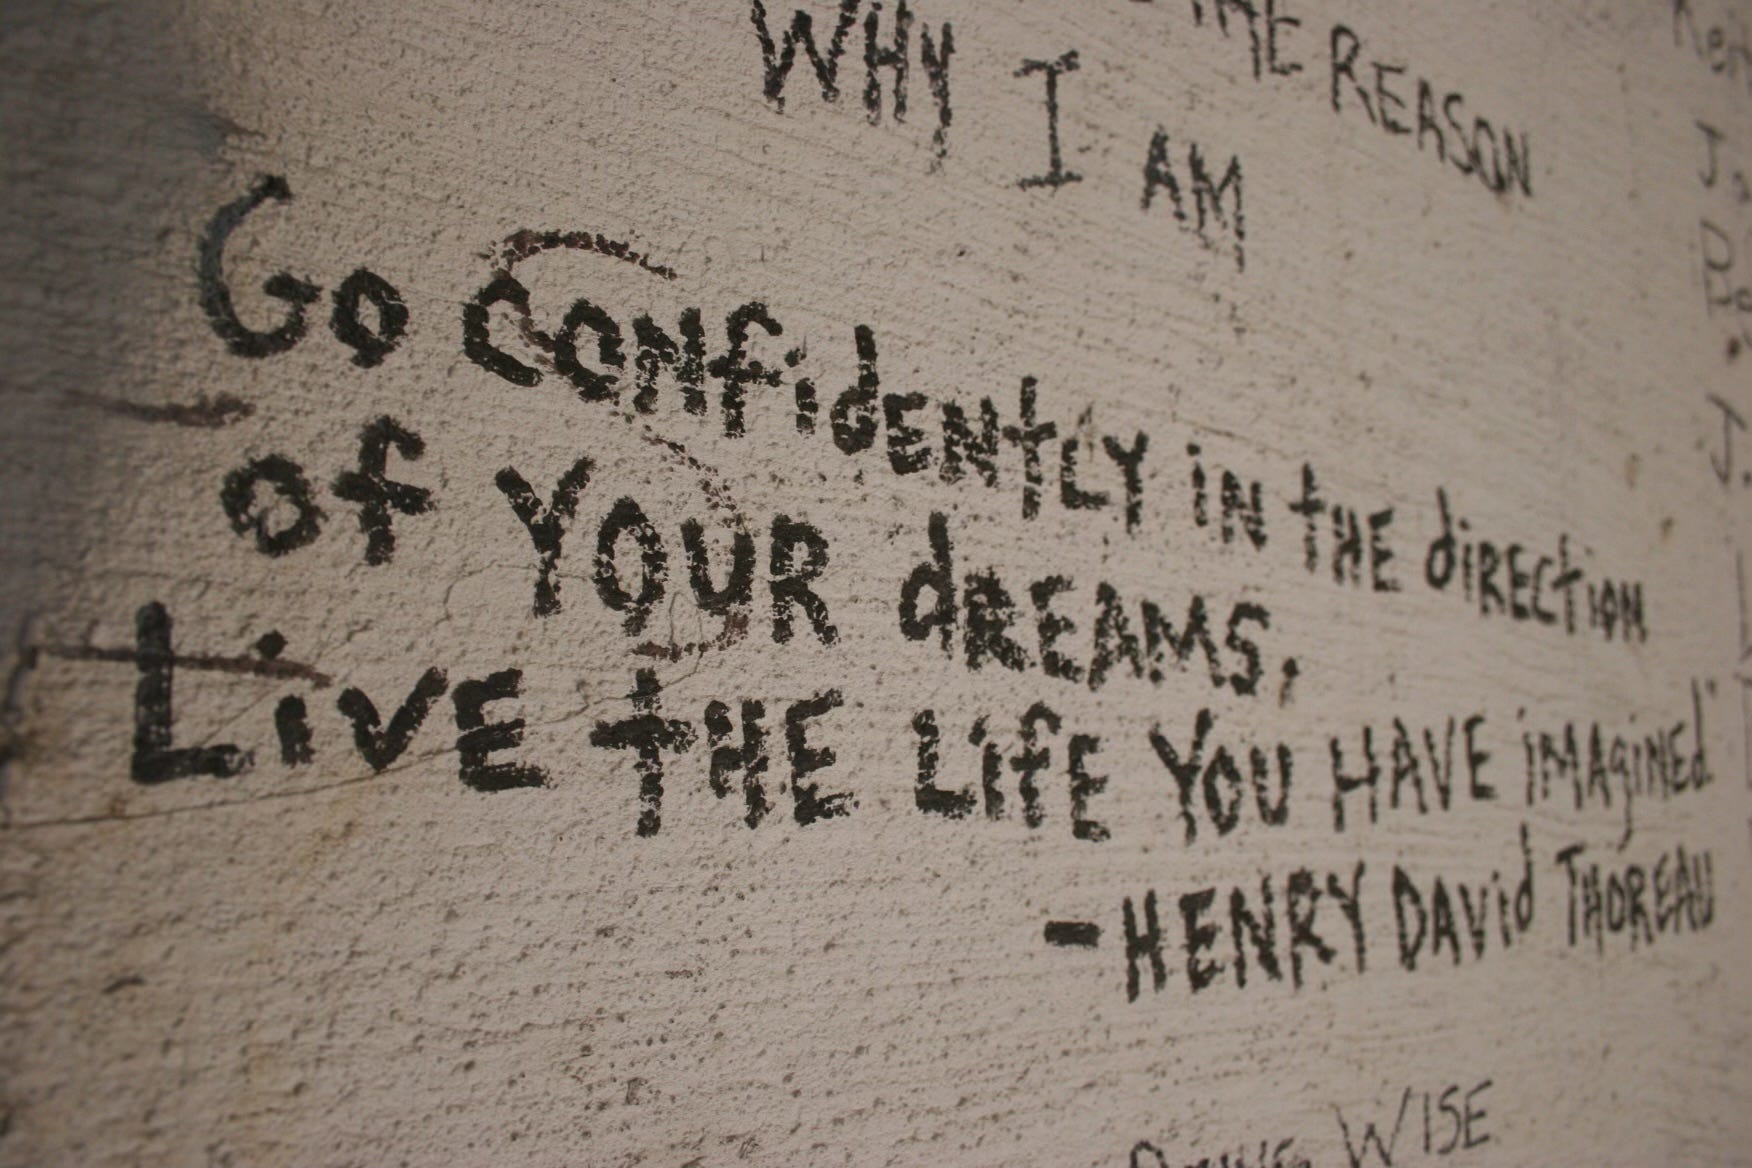 THE REASON
WHY I AM
Go CONfidENtLY iN tHE diRECtiON
of YOUR dREAMS.
LiVE tHE LifE YOU HAVE iMAgiNEd"
-HENRY DAVid THOREAU
WISE